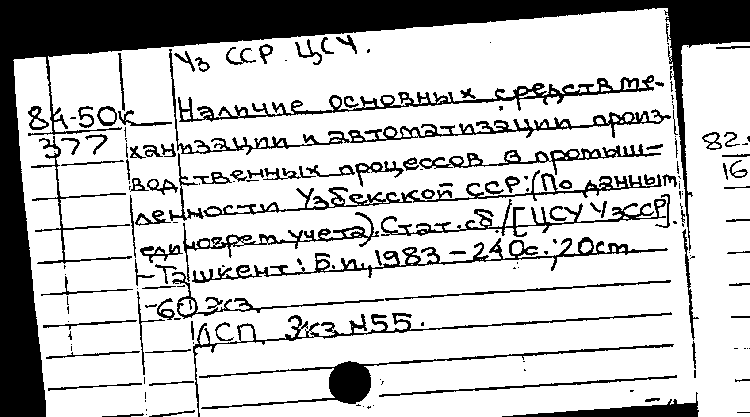 Уз ССР ЦСУ.
84-50к
377
Наличие основных средств ме-
ханизации и автоматизации произ-
водственных процессов в промыш-
ленности Узбекской ССР: (По данным
единоврем. учета). Стат. сб. / [ЦСУ УзССР].
- Ташкент: Б.и., 1983 - 240с.; 20см.
- 60 экз.
ДСП. Экз N55.
82
16